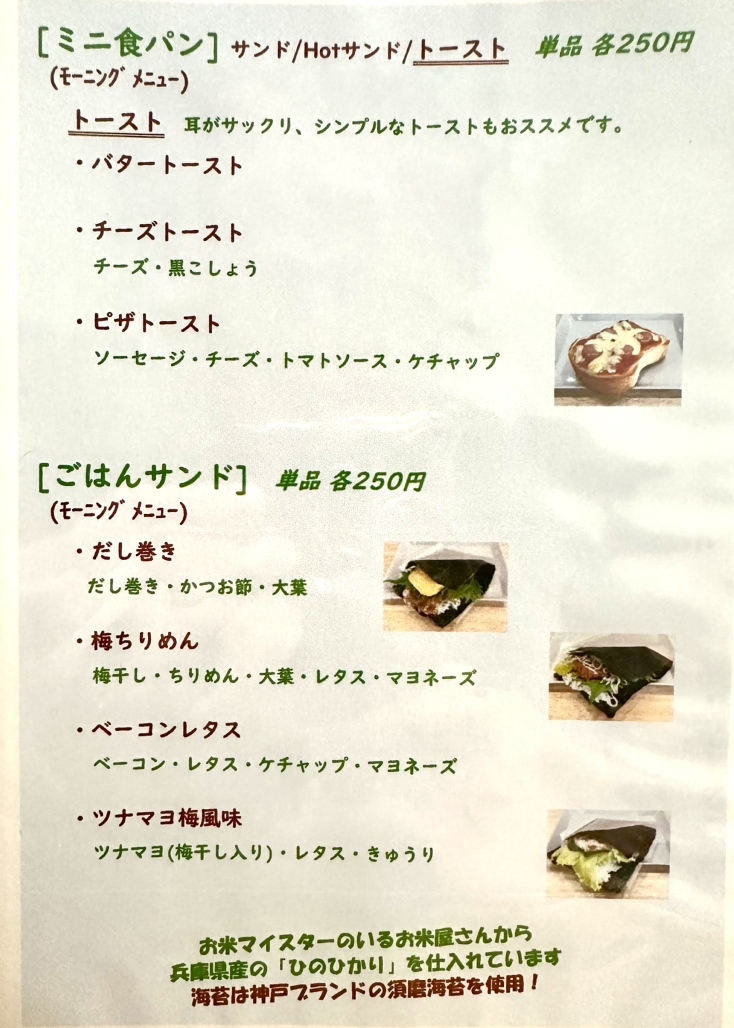 [ミニ食パン] サンド/Hotサンド/トースト 単品 各250円
(ﾓｰﾆﾝｸﾞﾒﾆｭｰ)
トースト 耳がサックリ、シンプルなトーストもおススメです。
・バタートースト
・チーズトースト
チーズ・黒こしょう
・ピザトースト
ソーセージ・チーズ・トマトソース・ケチャップ
[ごはんサンド] 単品 各250円
(ﾓｰﾆﾝｸﾞﾒﾆｭｰ)
・だし巻き
だし巻き・かつお節・大葉
・梅ちりめん
梅干し・ちりめん・大葉・レタス・マヨネーズ
・ベーコンレタス
ベーコン・レタス・ケチャップ・マヨネーズ
・ツナマヨ梅風味
ツナマヨ(梅干し入り)・レタス・きゅうり
お米マイスターのいるお米屋さんから
兵庫県産の「ひのひかり」を仕入れています
海苔は神戸ブランドの須磨海苔を使用！